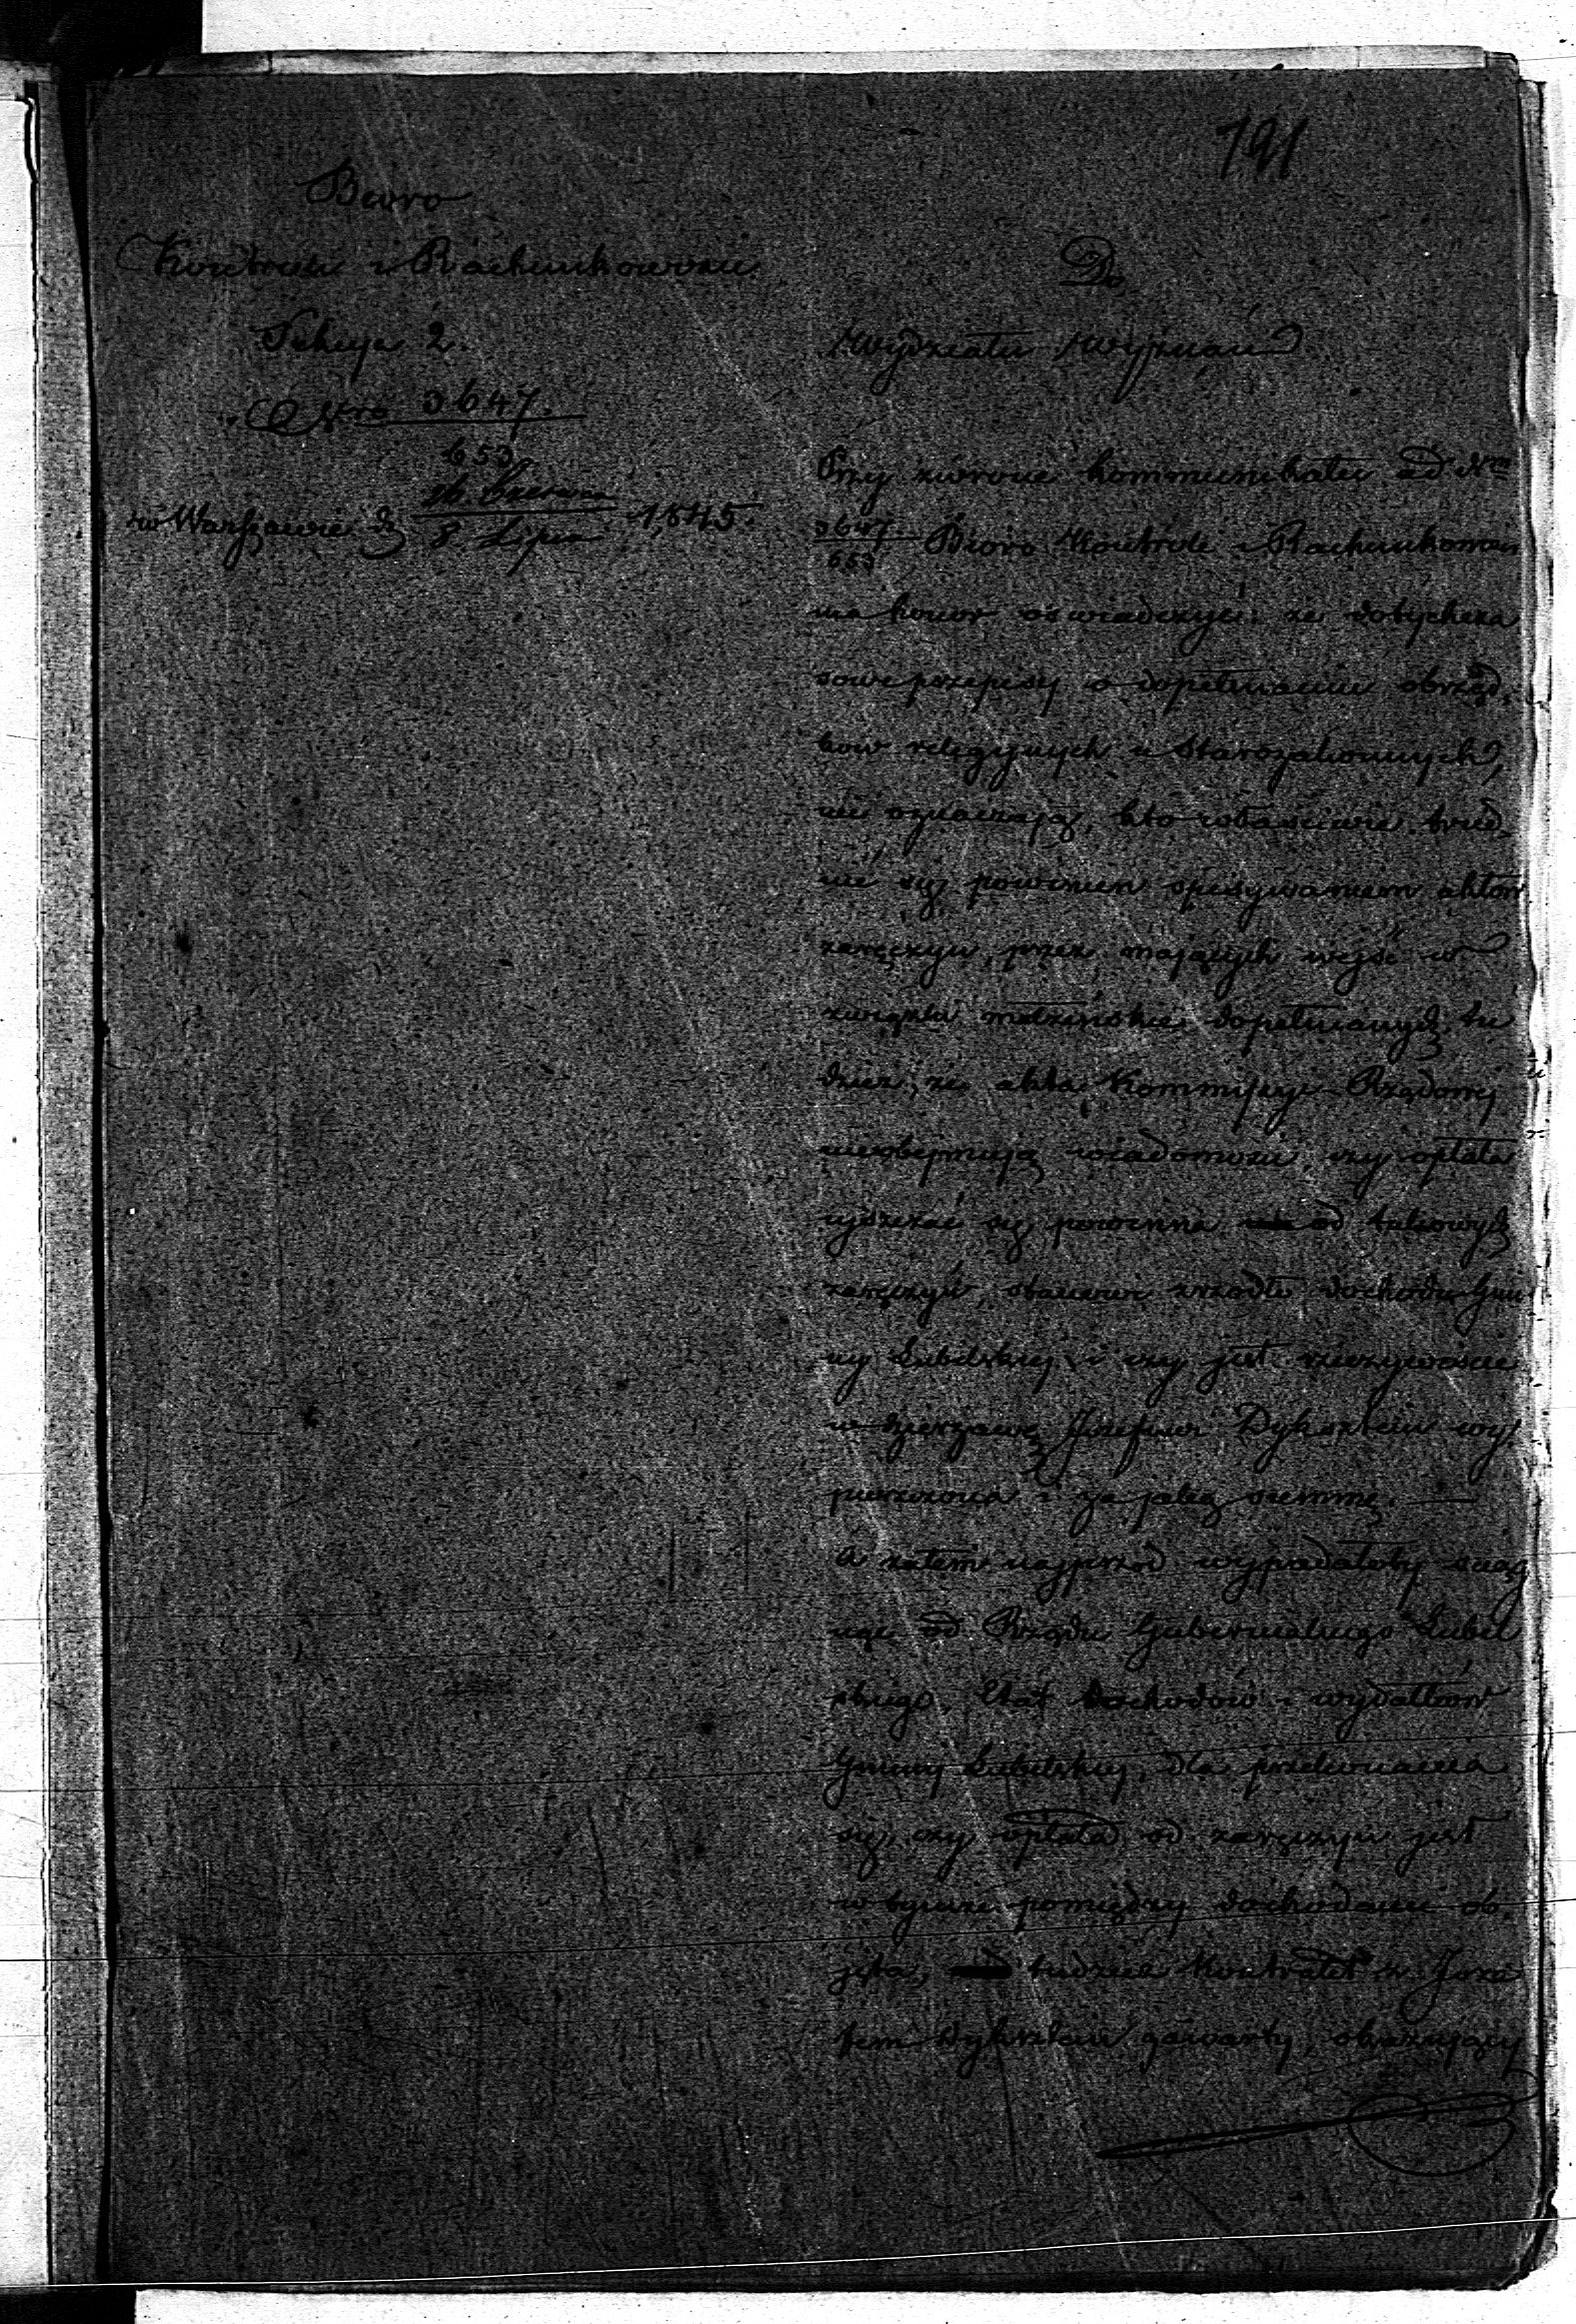 191
Biuro
Kontroli i Rachunkowości
Sekcya 2.
Nro 3647.
653
w Warszawie d. 26 Czerwca
8 Lipca 1845.
Do
Wydziału Wyznań
Przy zwrocie kommunikatu ad Nrm
3647
653 Biuro Kontroli i Rachunkowości
ma honor oświadczyć: że dotychcza
sowe przepisy o dopełnianiu obrząd-
ków religijnych u Starozakonnych,
nie oznaczają, kto właściwie trud-
nić się powinien spisywaniem aktów
zaręczyn, przez mających wejść w
związki małżeńskie dopełnianych, tu
dzież, że akta Kommissyi Rządowej
nieobejmują wiadomości, czy opłata
uiszczać się powinna od takowych
zaręczyn, stanowi zrzódło dochodu Gmi
ny Lubelskiej, i czy jest rzeczywiście
w dzierżawę Józefowi Dyksztein wy-
puszczona i za jaką summę. —
A zatem najprzód wypadałoby ściąg
nąć od Rządu Gubernialnego Lubel
skiego Etat dochodów i wydatków
Gminy Lubelskiej, dla przekonania
się, czy opłata od zaręczyn jest
w tymże pomiędzy dochodami ob-
jęta, tudzież Kontrakt z Józe
fem Dyksztein zawarty, obowiązujący